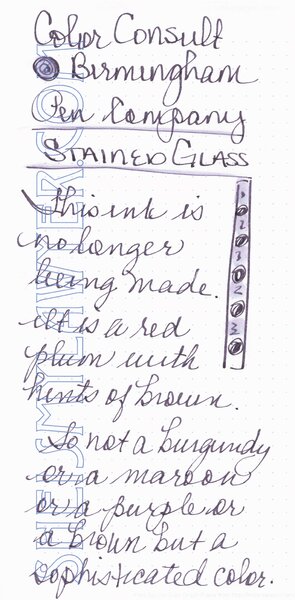 Color Consult
Birmingham
Pen Company
STAINED GLASS
This ink is
no longer
being made.
It is a red
plum with
hints of brown.
So not a burgundy
or a maroon
or a purple or
a brown but a
sophisticated color.